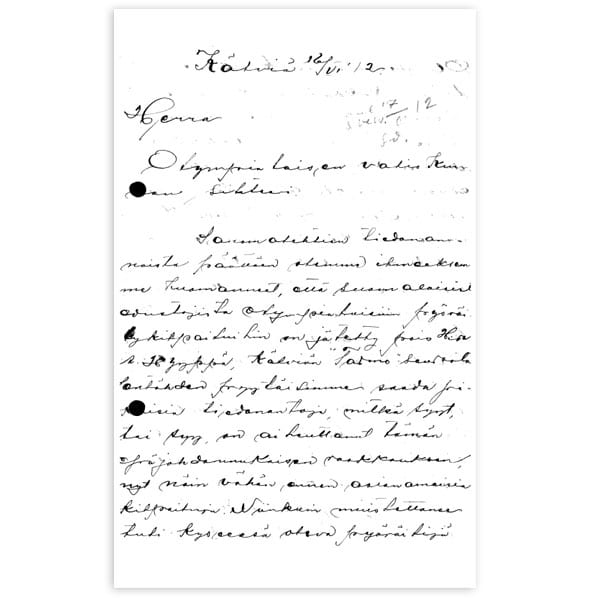 Kälviä 16/VI 12.
17/6 12
Herra
Olympialaisen valiokun-
nan sihteeri.
Sanomalehtien tiedonan-
noista päättäen olemme ihmeeksem-
me huomanneet, että suomalaisista
edustajista olympialaisiin pyöräi-
lykilpailuihin on jätetty pois
Hyyppä, Kälviän "Tarmo" seurasta
Tämän johdosta pyytäisimme saada
tiedonantoja, mitkä syyt,
tai syy, on aiheuttanut tämän
epäjohdonmukaisen
nyt näin vähän ennen asianomaisia
kilpailuja. Niinkuin muistettanee
tuli kyseessä oleva pyöräilijä